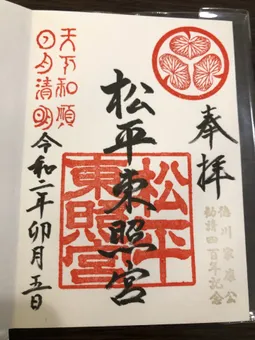 奉拝
徳川家康公
勧請四百年記念
松平東照宮
松平
東照宮
天下和順
日月清明
令和二年卯月五日